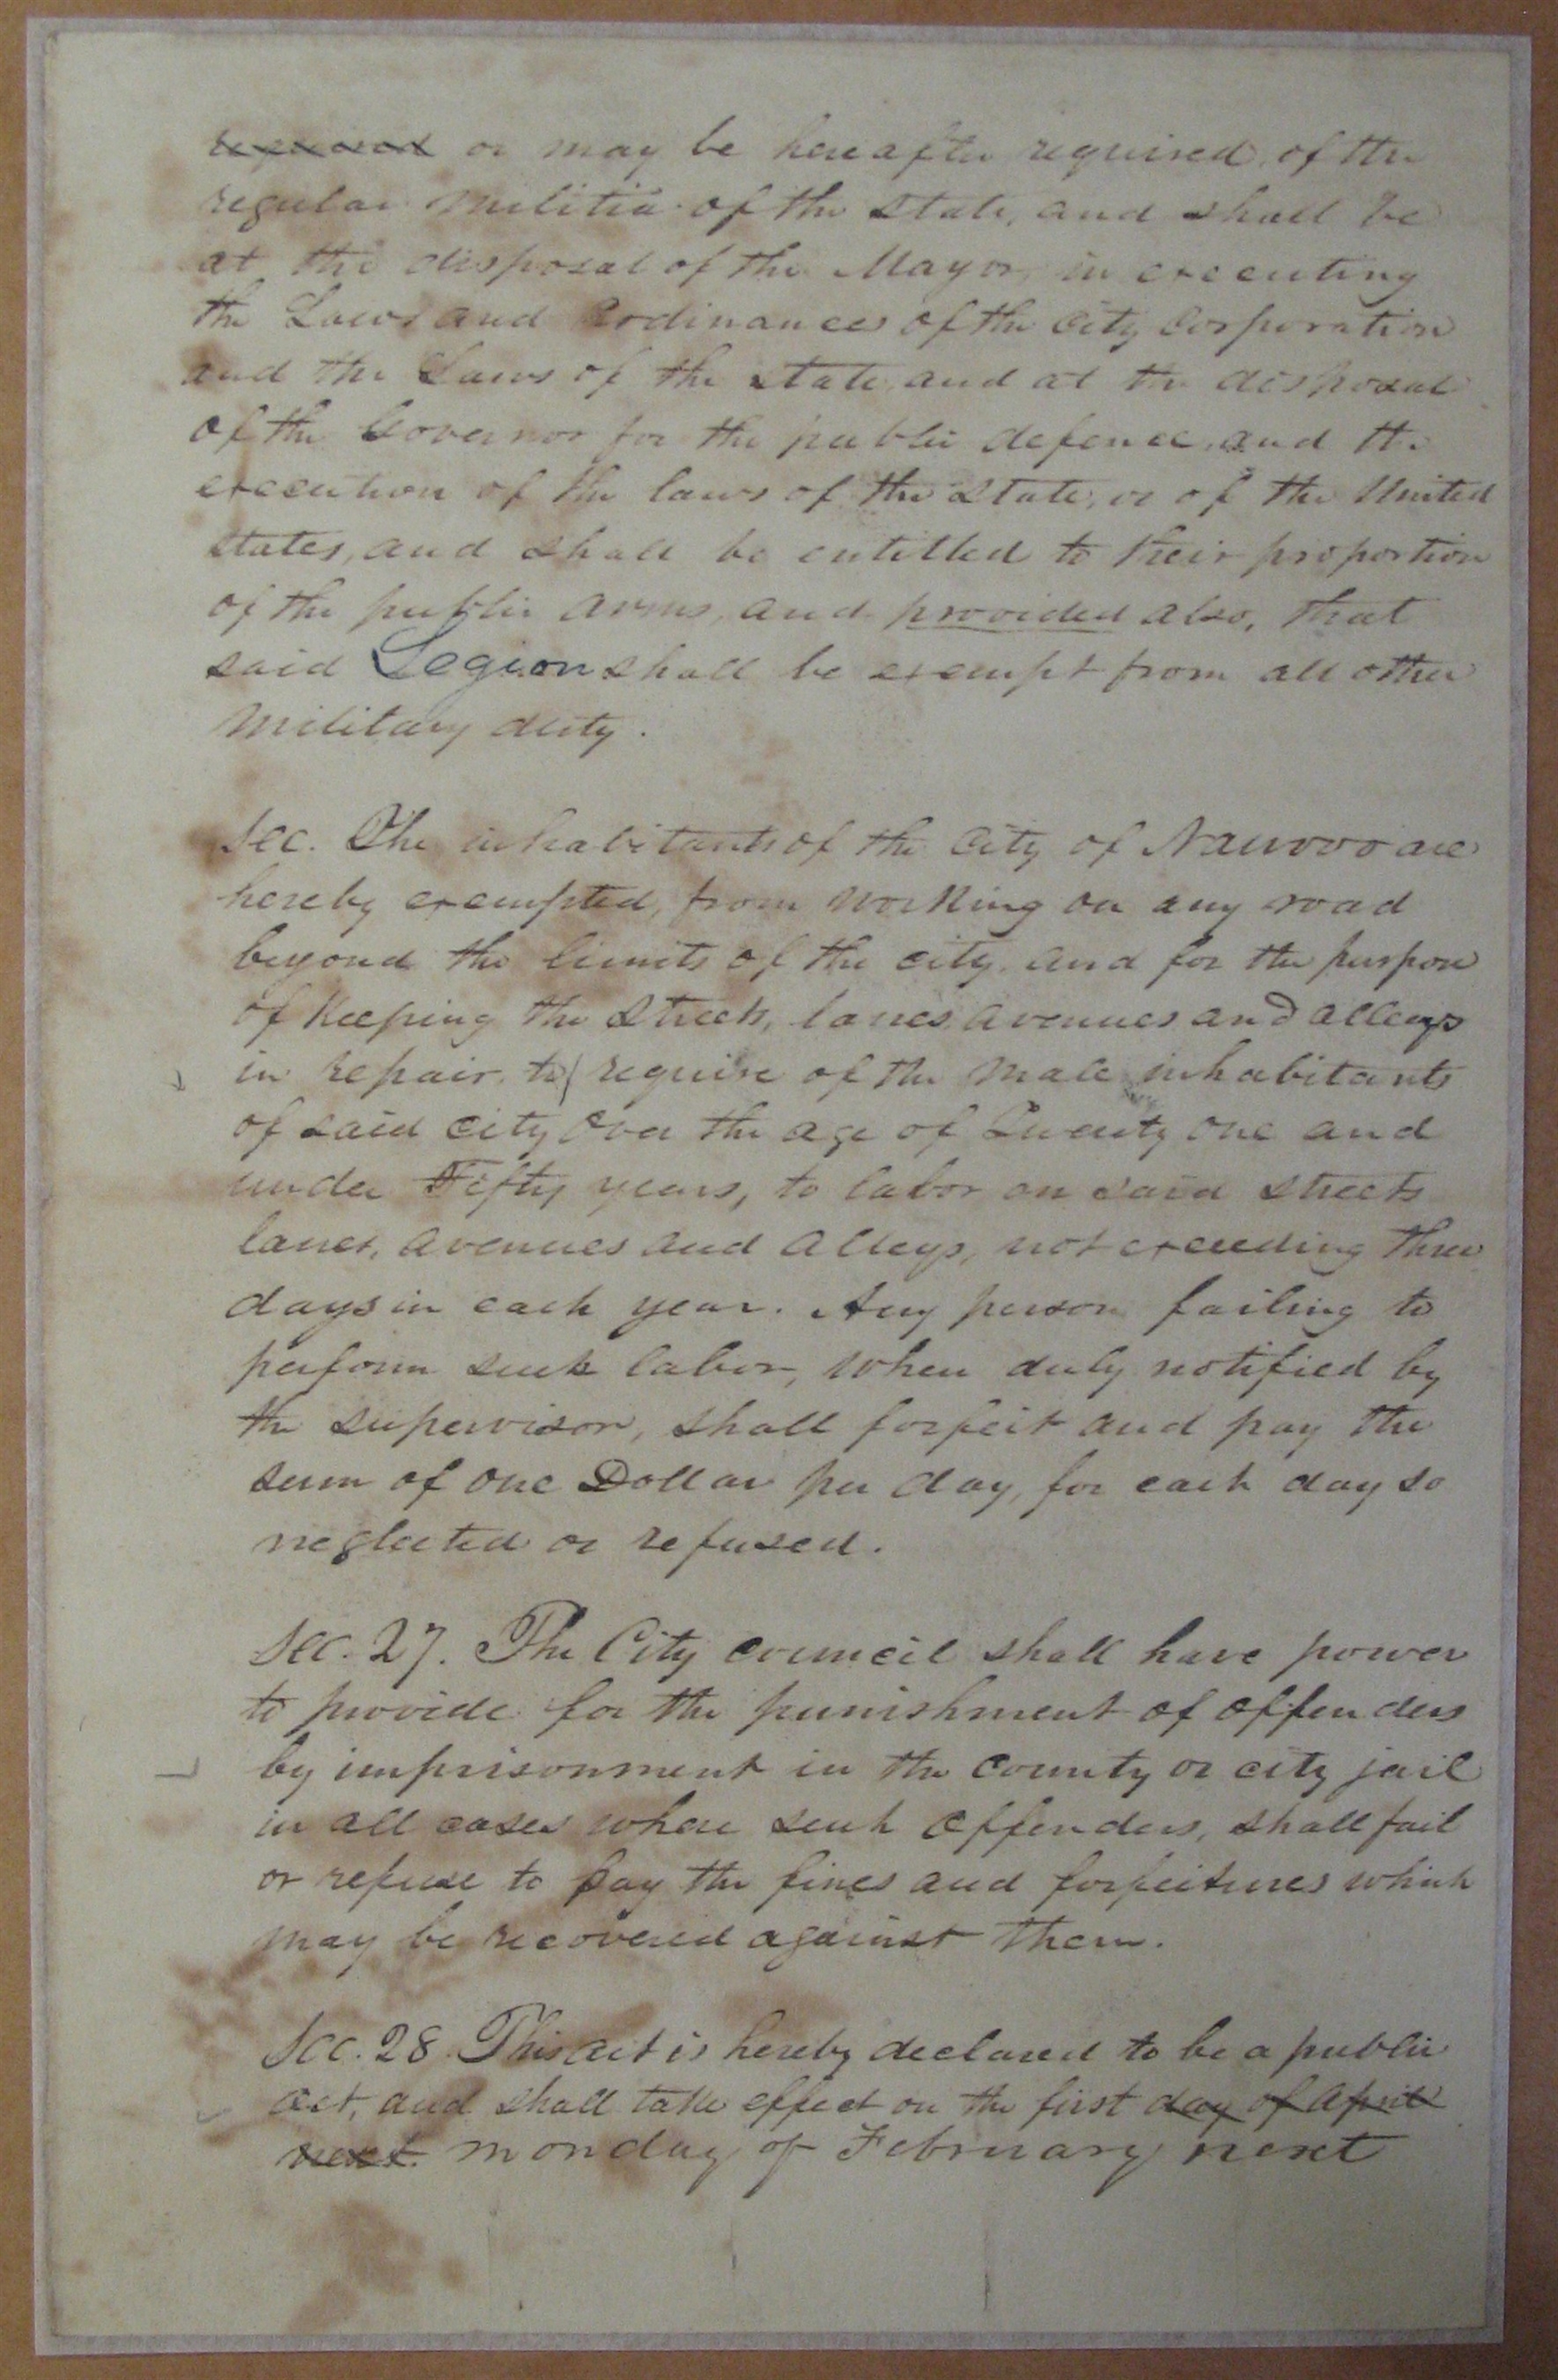 required or may be hereafter required, of the
regular militia of the state, and shall be
at the disposal of the Mayor in executing
the Laws and Ordinances of the City Corporation
and the Laws of the state, and at the disposal
of the Governor for the public defence, and the
execution of the laws of the state, or of the United
states, and shall be entitled to their proportion
of the public arms, and provided also, that
said Legion shall be exempt from all other
military duty.
Sec. The inhabitants of the City of Nauvoo are
hereby exempted, from working on any road
beyond the limits of the city, and for the purpose
of Keeping the Streets, lanes avenues and alleys
in repair, to require of the male inhabitants
of said city over the age of Twenty one and
under Fifty years, to labor on said streets
lanes, avenues and Alleys, not exceeding three
days in each year. Any person failing to
perform such labor, when duly notified by
the supervisor, shall forfeit and pay the
sum of one Dollar per day, for each day so
neglected or refused.
Sec. 27. The City council shall have power
to provide for the punishment of offenders
by imprisonment in the county or city jail
in all cases where such offenders, shall fail
or refuse to pay the fines and forfeitures which
may be recovered against them.
Sec. 28. This act is hereby declared to be a public
act, and shall take effect on the first day of April
next. monday of February next